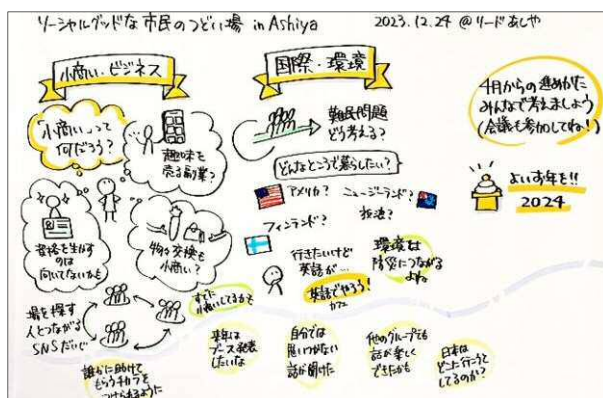 ソーシャルグッドな市民のつどい場 in Ashiya
2023.12.24 @リードあしや
小商い・ビジネス
「小商い」って
何だろう?
趣味を
売る副業?
資格を生かす
のは
向いてないかも
物々交換も
小商い?
場を探す
人とつながる
SNSだいじ
すでに
小商いしてるかも
誰かに助けて
もらうチカラを
つけられるように
国際・環境
難民問題
どう考える?
どんなところで暮らしたい?
アメリカ?
ニュージーランド?
フィンランド?
行きたいけど
英語が…
英語でやろう!
カフェ
環境は
防災につながる
よね
来年は
ブース発表
したいな
自分では
思いつかない
話が聞けた
他のグループでも
話が楽しく
できたかも
日本は
どこに行こうと
してるのか?
4月からの進めかた
みんなで考えましょう
(会議も参加してね!)
よいお年を!!
2024